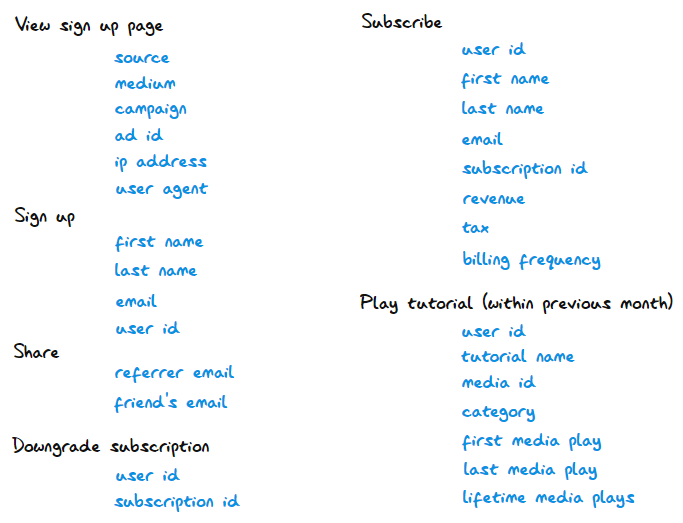 View sign up page
source
medium
campaign
ad id
ip address
user agent
Sign up
first name
last name
email
user id
Share
referrer email
friend's email
Downgrade subscription
user id
subscription id
Subscribe
user id
first name
last name
email
subscription id
revenue
tax
billing frequency
Play tutorial (within previous month)
user id
tutorial name
media id
category
first media play
last media play
lifetime media plays